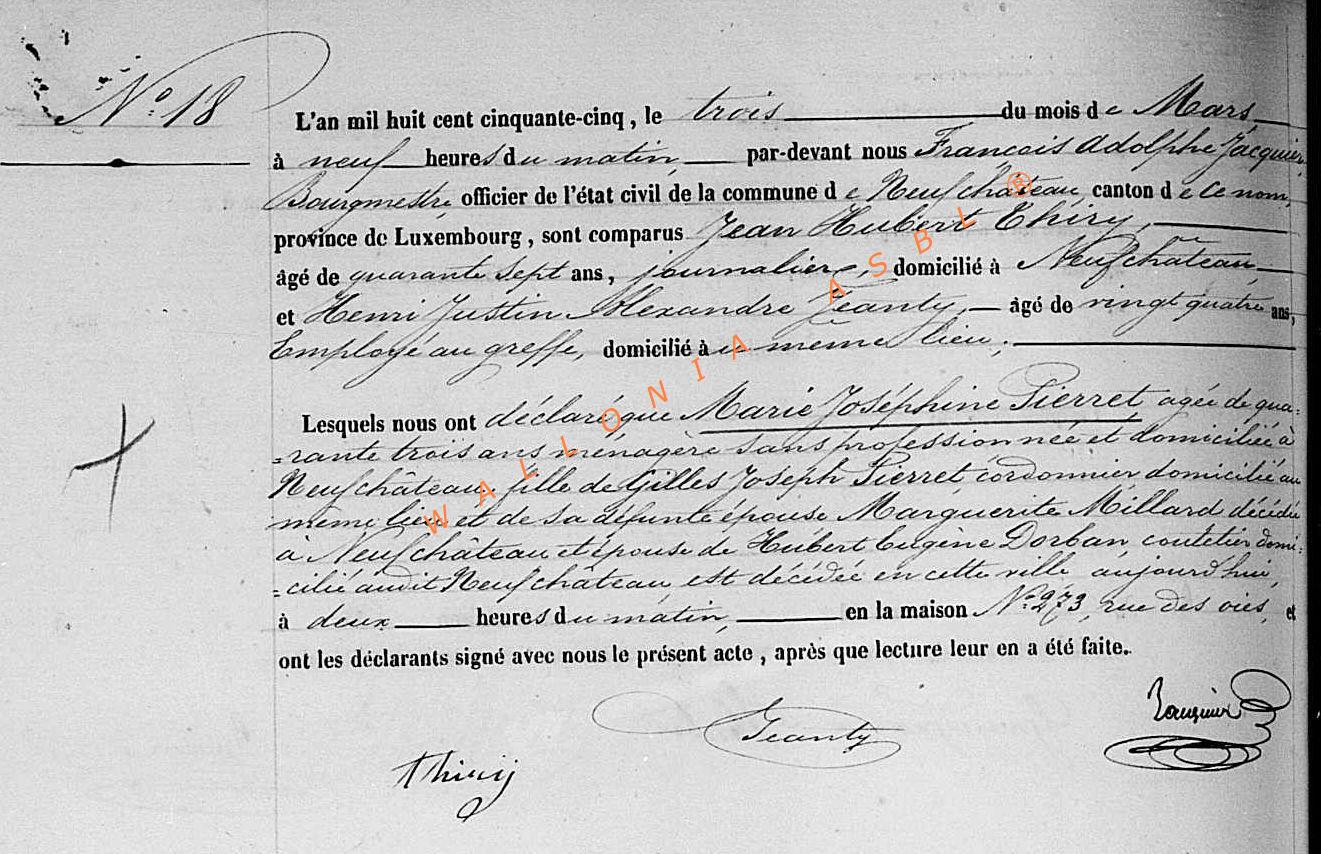 N° 18
L'an mil huit cent cinquante-cinq, le trois du mois de Mars
à neuf heures du matin, par-devant nous François Adolphe Jacquier,
Bourgmestre, officier de l'état civil de la commune de Neufchâteau, canton de ce nom,
province de Luxembourg, sont comparus Jean Hubert Thiry,
âgé de quarante sept ans, journalier, domicilié à Neufchâteau
et Henri Justin Alexandre Jeanty, âgé de vingt quatre ans,
Employé au greffe, domicilié au même lieu;
Lesquels nous ont déclaré que Marie Joséphine Pierret agée de qua=
=rante trois ans ménagère sans profession née et domiciliée à
Neufchâteau, fille de Gilles Joseph Pierret, cordonnier, domicilié au
même lieu et de sa défunte épouse Marguerite Millard décédée
à Neufchâteau et épouse de Hubert Eugène Dorban, coutelier domi=
=cilié audit Neufchâteau, est décédée en cette ville aujourd'hui,
à deux heures du matin, en la maison N° 273, rue des oies, et
ont les déclarants signé avec nous le présent acte, après que lecture leur en a été faite.
Jacquier
Jeanty
Thiry
WALLONIA ASBL ®